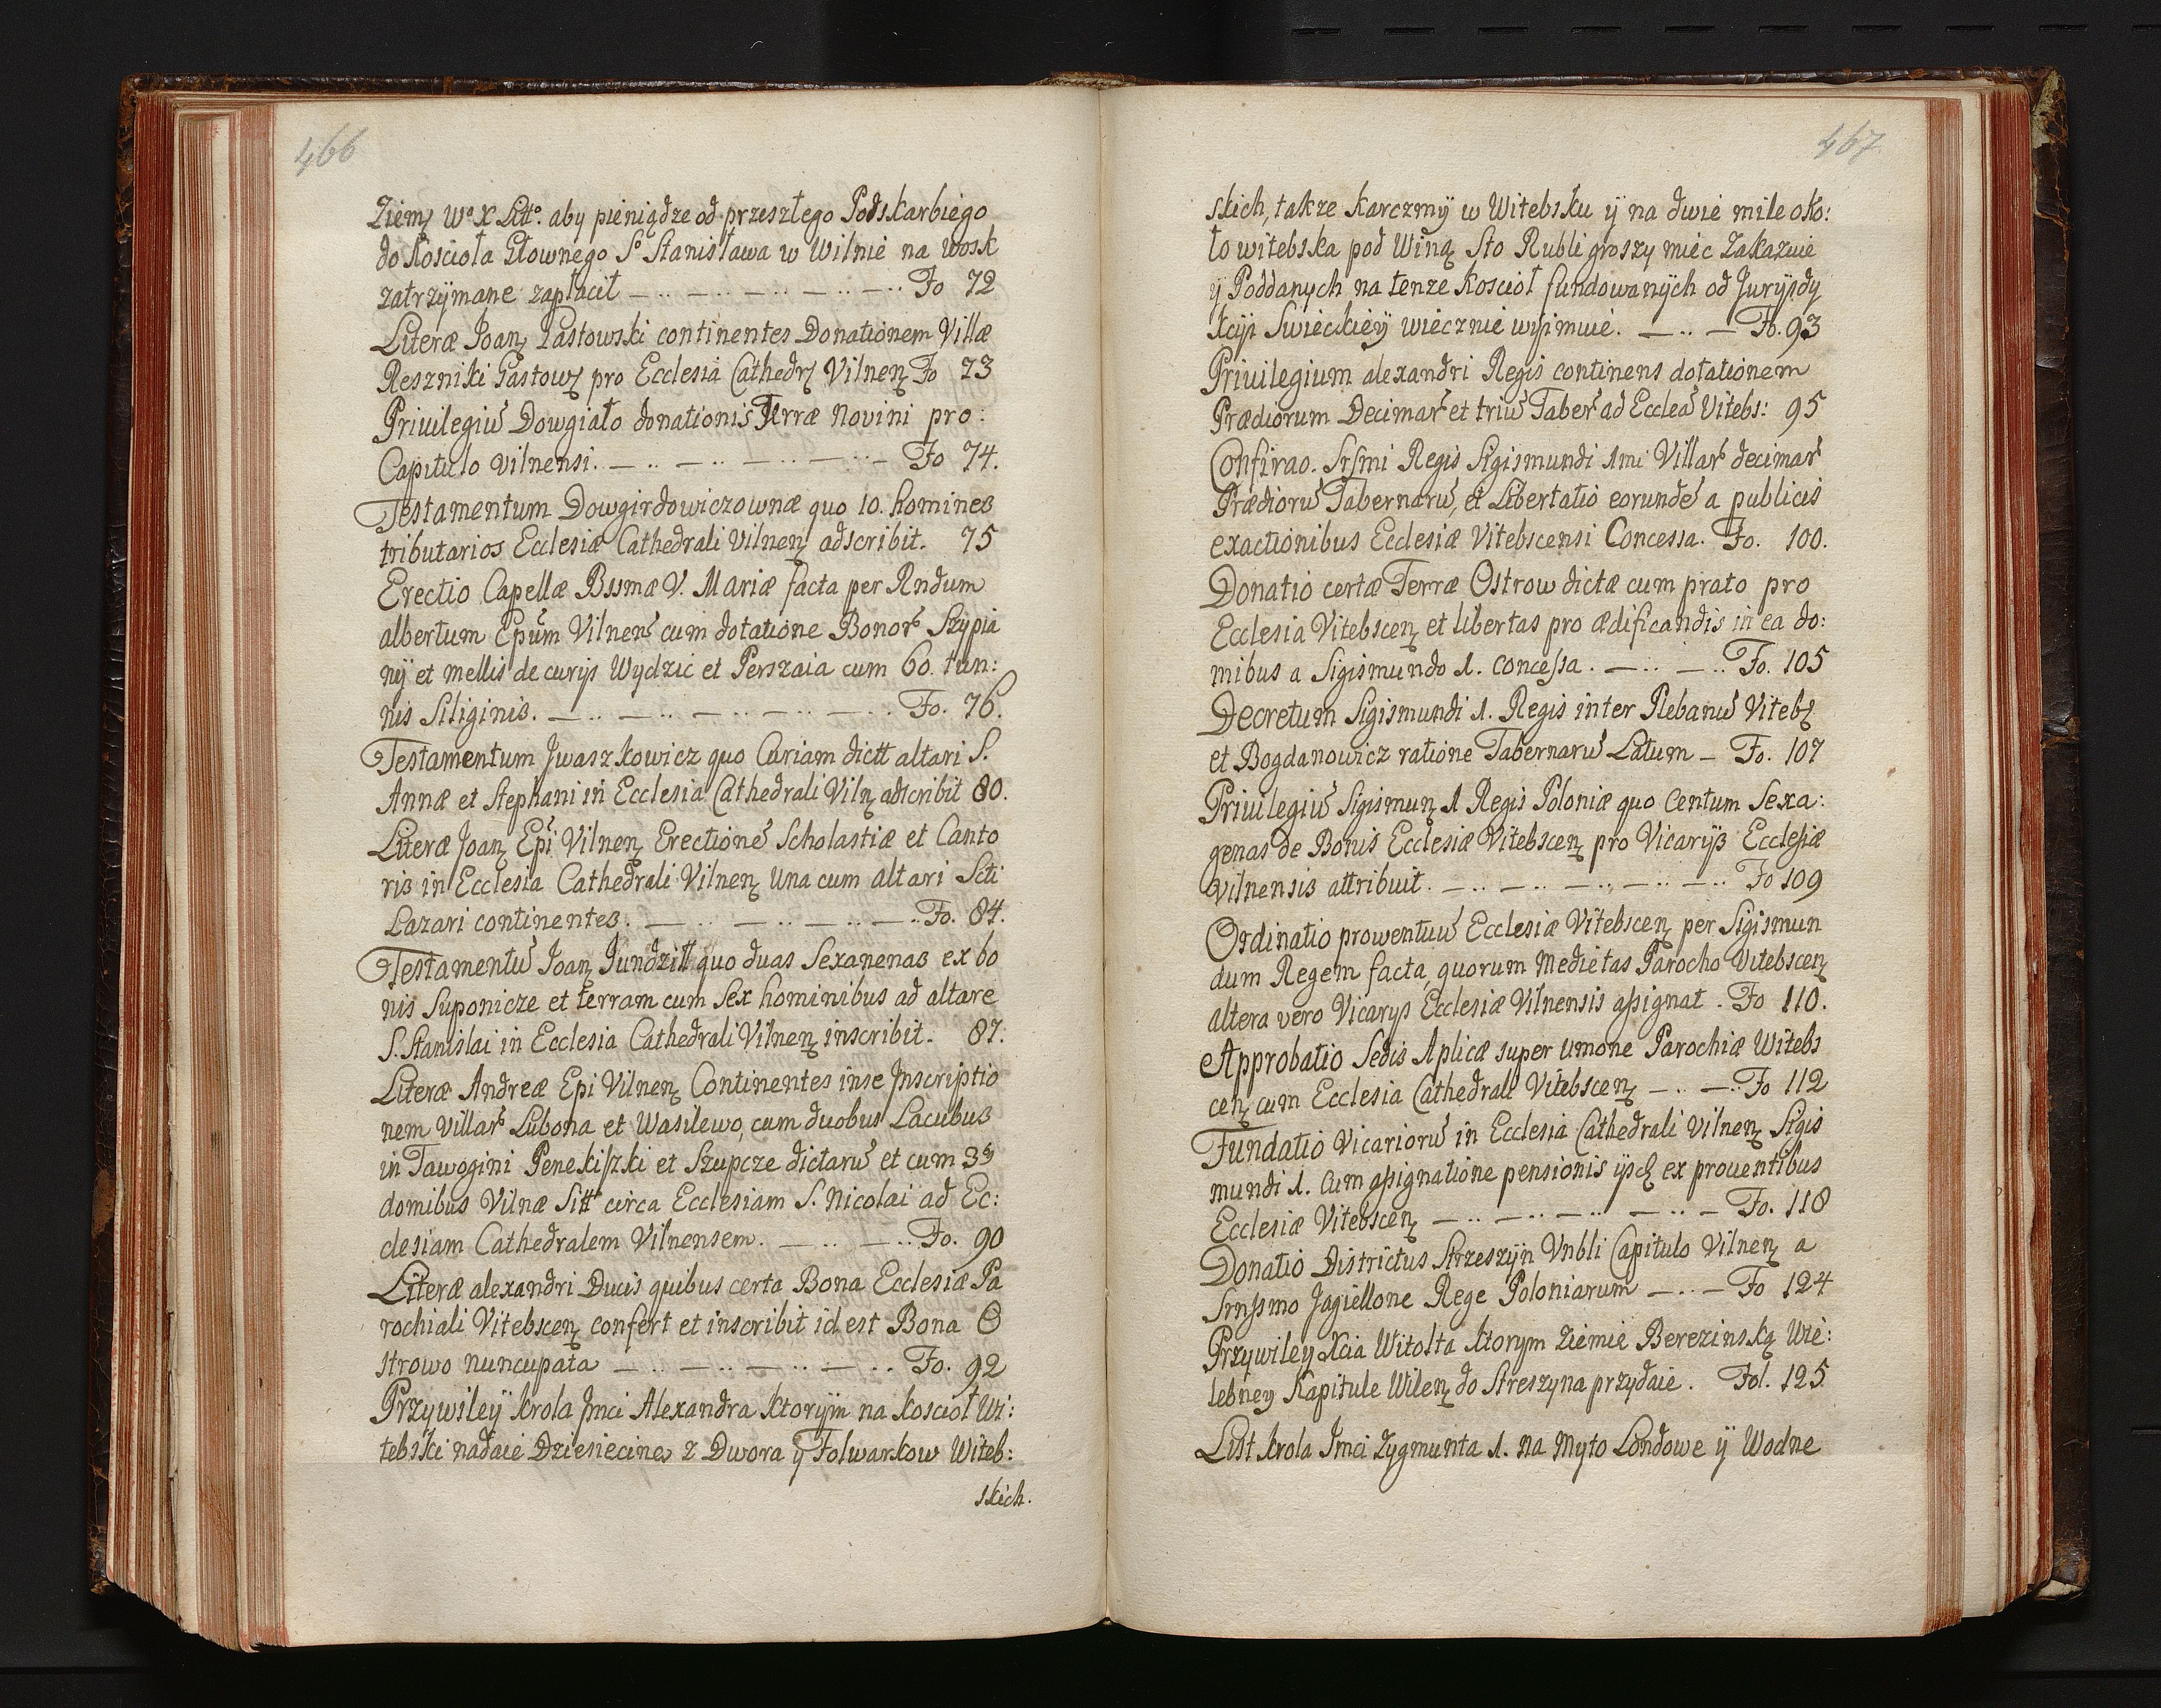 466
Ziemȩ Wº X Littº. aby pieniądze od przeszłego Podskarbiego
do Kosciola Głownego Sº Stanisława w Wilnie na wosk
zatrzÿmane zapłacił — .. — .. — .. — .. — .. Fo 72
Literæ Joanȩ Gastowski continentes Donationem Villæ
Reszniki Gastowȩ pro Ecclesia Cathedrȩ Vilnenȩ Fo 73
Priuilegiu Dowgiało donationis Terræ Novini pro:
Capitulo Vilnensi. — .. — .. — .. — .. — Fo 74.
Testamentum Dowgirdowiczownæ quo 10. homines
tributarios Ecclesiæ Cathedrali Vilnenȩ adscribit. 75
Erectio Capellæ Bssmæ V. Mariæ facta per Rndum
albertum Epum Vilnens cum dotatione Bonor Szypia
nÿ et mellis de curÿs Wydzic et Perszaia cum 60. tun:
nis Siliginis. — .. — .. — .. — .. — .. Fo. 76.
Testamentum Jwaszkowicz quo Curiam dictt altari S.
Annæ et Stephani in Ecclesia Cathedrali Vilnȩ adscribit 80.
Literæ Joanȩ Epi Vilnenȩ Erectione Scholastiæ et Canto
ris in Ecclesia Cathedrali Vilnenȩ Una cum altari Scti
Lazari continentes. — .. — .. — .. — .. Fo. 84.
Testamentu Joanȩ Jundzitt quo duas Sexanenas ex bo
nis Suponicze et terram cum Sex hominibus ad altare
S. Stanislai in Ecclesia Cathedrali Vilnenȩ inscribit. 87.
Literæ Andreæ Epi Vilnenȩ Continentes inse Jnscriptio
nem Villar Lubona et Wasilewo, cum duobus Lacubus
in Tawogini Penekiszki et Szupcze dictaru et cum 3
domibus Vilnæ Sitt circa Ecclesiam S. Nicolai ad Ec:
clesiam Cathedralem Vilnensem. — .. — .. Fo. 90
Literæ alexandri Ducis quibus certa Bona Ecclesiæ Pa
rochiali Vitebscenȩ confert et inscribit id est Bona O
strowo nuncupata — .. — .. — .. — .. Fo. 92
Przywileÿ krola Jmci Alexandra ktorÿm na kosciół Wi:
tebski nadaie Dziesiecinę z Dwora ÿ Folwarkow Witeb:
skich.
467
skich, takze karczmÿ w Witebsku ÿ na dwie mile oko:
ło witebska pod Winą Sto Rubli groszy miec zakazuie
ÿ Poddanych na tenze Kosciół fundowanÿch od Jurÿzdy
kcyi Swieckieÿ wiecznie wyimuie. — .. — Fo. 93
Priuilegium alexandri Regis continens dotationem
Prædiorum Decimar et triu Taber ad Ecclea Vitebs: 95
Confirao. Srsmi Regis Sigismundi 1mi Villar decimar
Prædioru Tabernaru, et Libertatio eorunde a publicis
exactionibus Ecclesiæ Vitebscensi Concessa. Fo. 100.
Donatio certæ Terræ Ostrow dictæ cum prato pro
Ecclesia Vitebscenȩ et libertas pro ædificandis in ea do:
mibus a Sigismundo 1. concessa. — .. — .. Fo. 105
Decretum Sigismundi 1. Regis inter Plebanu Vitebȩ
et Bogdanowicz ratione Tabernaru Latum — Fo. 107
Priuilegiu Sigismunȩ 1 Regis Poloniæ quo Centum Sexa:
genas de Bonis Ecclesiæ Vitebscenȩ pro Vicarÿs Ecclesiæ
Vilnensis attribuit. — .. — .. — .. — .. — .. Fo 109
Ordinatio prowentuu Ecclesiæ Vitebscenȩ per Sigismun
dum Regem facta, quorum Medietas Parocho Vitebscenȩ
altera vero Vicarÿs Ecclesiæ Vilnensis assignat. Fo 110.
Approbatio Sedis Aplicæ super Unione Parochiæ Witebs
cenȩ cum Ecclesia Cathedrali Vitebscenȩ — .. — .. Fo 112
Fundatio Vicarioru in Ecclesia Cathedrali Vilnenȩ Sigis
mundi 1. Cum assignatione pensionis ÿsdȩ ex prouentibus
Ecclesiæ Vitebscenȩ — .. — .. — .. — .. — Fo. 118
Donatio Districtus Strzeszÿn Vnbli Capitulo Vilnenȩ a
Srnssmo Jagiellone Rege Poloniarum — .. — Fo 124
Przywileÿ Xcia Witolta ktorym Ziemie Berezinską Wie:
lebney Kapitule Wilenȩ do Streszyna przydaie. Fol. 125
List krola Jmci Zygmunta 1. na Myto Londowe ÿ Wodne